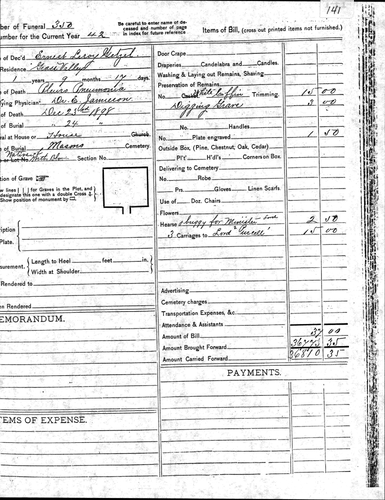 141
ber of Funeral 350
umber for the Current Year 42
Be careful to enter name of deceased and number of page in index for future reference
of Dec'd Ernest Leroy Hetzel
Residence Grass Valley
1 years 9 months 17 days
of Death Pleuro Pneumonia
ying Physician Dr. C. Jameison
of Death Dec 23rd 1898
of Burial " 24 "
al at House or Church
of Burial Masons Cemetery.
Section No.
ition of Grave
w lines [ ] for Graves in the Plot, and
designate this one with a double Cross
Show position of monument by
iption
Plate.
surement. Length to Heel feet in.
Width at Shoulder
Rendered to
en Rendered
EMORANDUM.
EMS OF EXPENSE.
Items of Bill, (cross out printed items not furnished.)
Door Crape
Draperies Candelabra and Candles.
Washing & Laying out Remains, Shaving.
Preservation of Remains
No. White Coffin Trimming. 15 00
Digging Grave 3 00
No. Handles
No. Plate engraved 1 50
Outside Box, (Pine, Chestnut, Oak, Cedar)
Pl't'r H'dl's Corners on Box.
Delivering to Cemetery
No. Robe
Prs. Gloves Linen Scarfs
Use of Doz. Chairs
Flowers
Hearse & buggy for Minister 2 50
3 Carriages to 15 00
Advertising
Cemetery charges
Transportation Expenses, &c.
Attendance & Assistants
Amount of Bill 37 00
Amount Brought Forward 35
Amount Carried Forward 35
PAYMENTS.